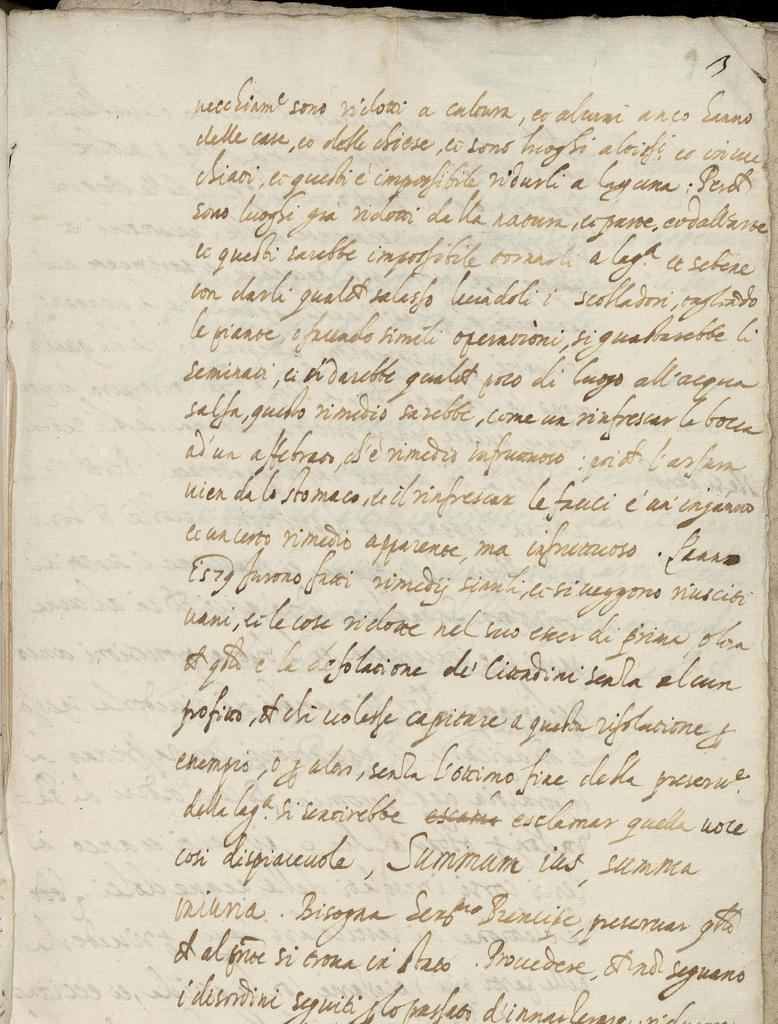 3
vecchiam.e sono ridotti a coltura, et alcuni anco hanno
delle case, et delle chiese, et sono luoghi
et questi è impossibile ridurli a laguna: Perch
sono luoghi già ridotti dalla natura, et parte, et dall'arte
et questi sarebbe impossibile tornarli a lag.a et sebene
con darli qualch salasso scolladori, tagliādo
le piante, o facendo simili operationi, si guastarebbe li
seminati, et si darebbe qualch poco di luogo all'acqua
salsa, questo rimedio sarebbe, come un rinfrescar la bocca
ad un affebrato, ch'è rimedio infruttuoso: poich l'arsura
vien da lo stomaco, et il rinfrescar le fauci è un inganno
et un certo rimedio apparente, ma infruttuoso. L'anno
furono fatti rimedij simili, et si veggono riusciti
vani, et le cose ridotte nel suo esser di prima, oltra
ch qsto è la desolatione de' Cittadini senza alcun
profitto, et chi volesse capitare a questa risolutione p
esempio, o p altro, senza l'ottimo fine della preserv.e
della lag.a si sentirebbe esclamar quella voce
così dispiacevole, Summum ius, summa
iniuria. Bisogna Ser.mo Prencipe, preservar
ch al si trova in stato. Provedere, ch nō seguano
i disordini seguiti p lo passato